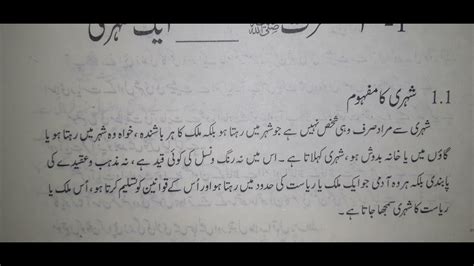 ﷺ ____ ایک شہری
1.1 شہری کا مفہوم
شہری سے مراد صرف وہی شخص نہیں ہے جو شہر میں رہتا ہو بلکہ ملک کا ہر باشندہ، خواہ وہ شہر میں رہتا ہو یا
گاؤں میں یا خانہ بدوش ہو، شہری کہلاتا ہے۔ اس میں نہ رنگ و نسل کی کوئی قید ہے، نہ مذہب و عقیدے کی
پابندی بلکہ ہر وہ آدمی جو ایک ملک یا ریاست کی حدود میں رہتا ہو اور اُس کے قوانین کو تسلیم کرتا ہو، اُس ملک یا
ریاست کا شہری سمجھا جاتا ہے۔